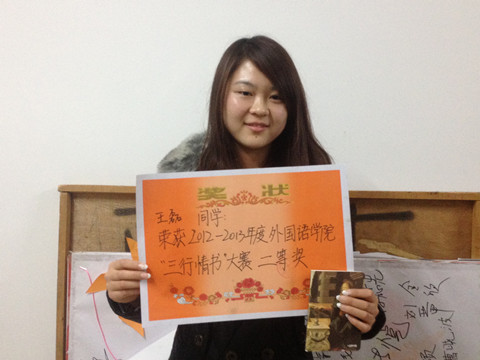 奖 状
王磊 同学:
荣获2012-2013年度外国语学院
"三行情书"大赛二等奖